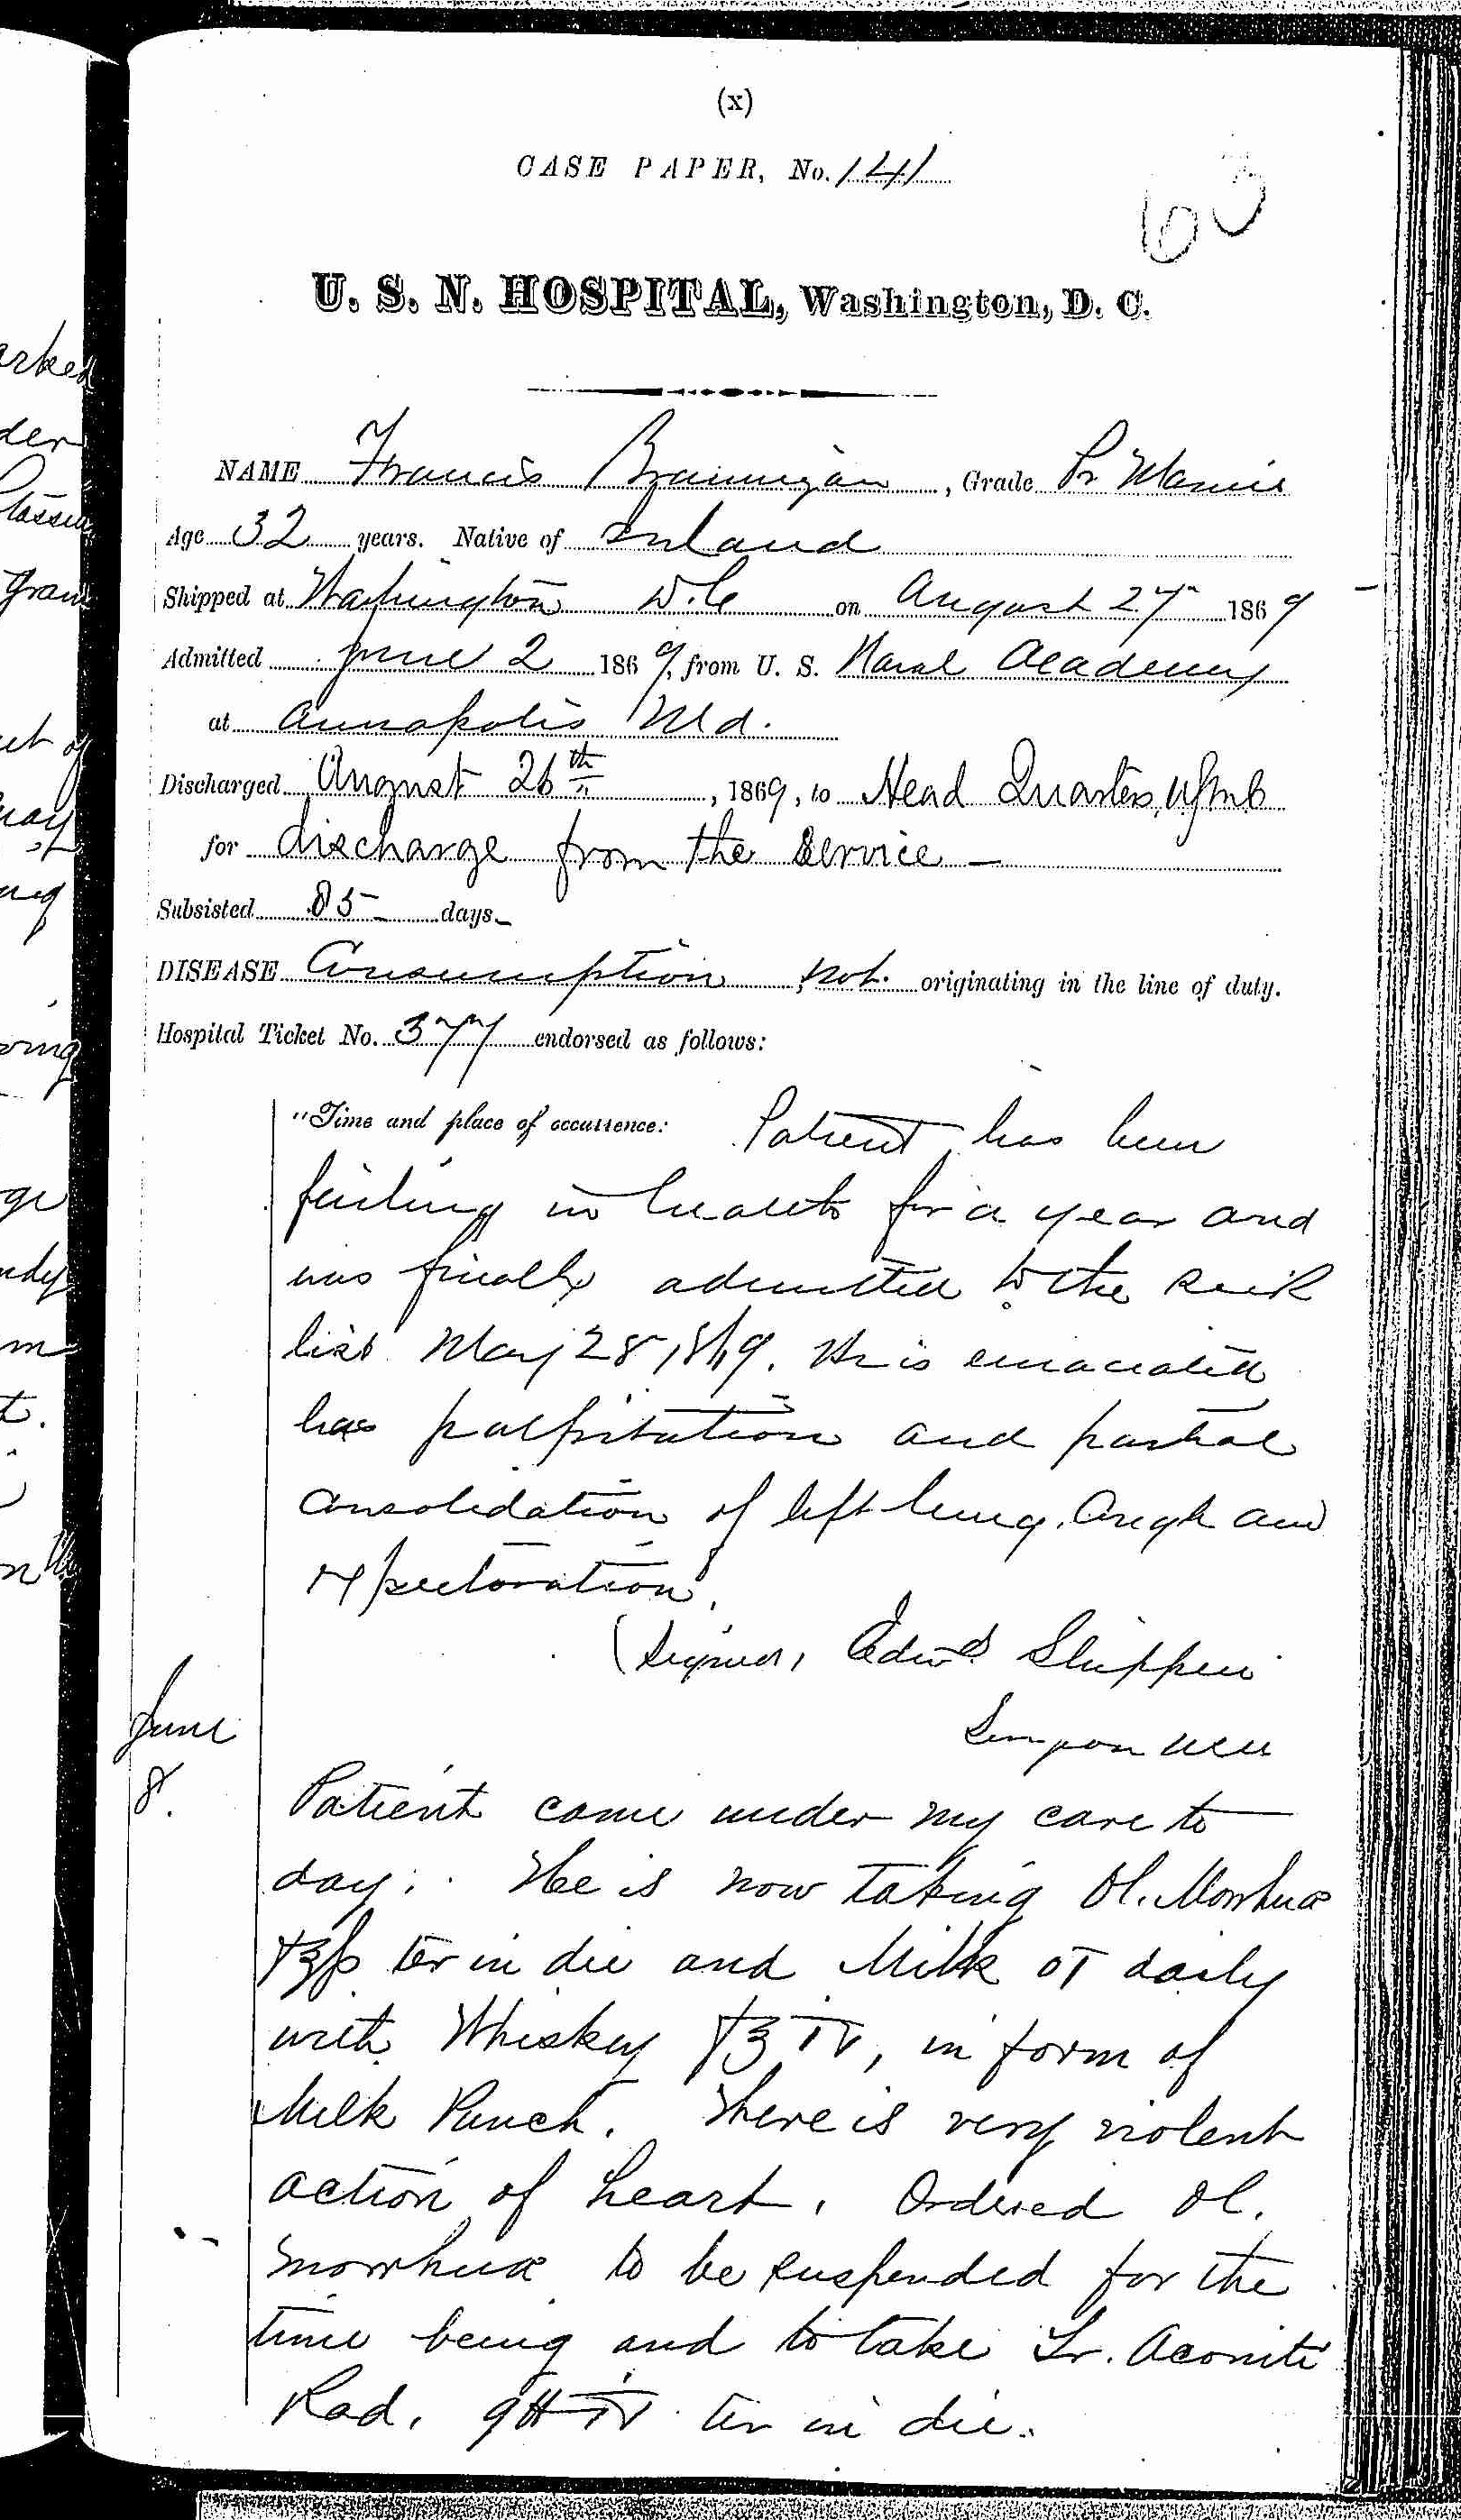 (x)
CASE PAPER, No. 141
60
U. S. N. HOSPITAL, Washington, D. C.
NAME Francis Brannigan, Grade Pr Marine
Age 32 years. Native of Ireland
Shipped at Washington D.C on August 27 1869
Admitted June 2 1869, from U. S. Naval Academy
at Annapolis Md.
Discharged August 26th, 1869, to Head Quarters, USMC
for discharge from the service —
Subsisted 85 days.
DISEASE Consumption, not originating in the line of duty.
Hospital Ticket No. 377 endorsed as follows:
"Time and place of occurrence: Patient has been
failing in health for a year and
was finally admitted to the sick
list May 28, 1869. He is emaciated
has palpitation and partial
consolidation of left lung. Cough and
expectoration.
(Signed, Edwd Shippen
Surgeon USN
June
8. Patient came under my care to
day; He is now taking Ol. Morrhuæ
f℥ß ter in die and Milk OT daily
with Whiskey f℥iv, in form of
Milk Punch. There is very violent
action of heart. Ordered Ol.
Morrhuæ to be suspended for the
time being and to take Tr. Aconiti
Rad. gtt iv ter in die.
arked
der
gram
ving
ge
m
t.